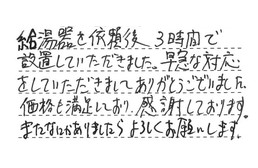 給湯器を依頼後、3時間で
設置していただきました。早急な対応
をしていただきましてありがとうございました。
価格も満足しおり、感謝しております。
またなにかありましたらよろしくお願いします。